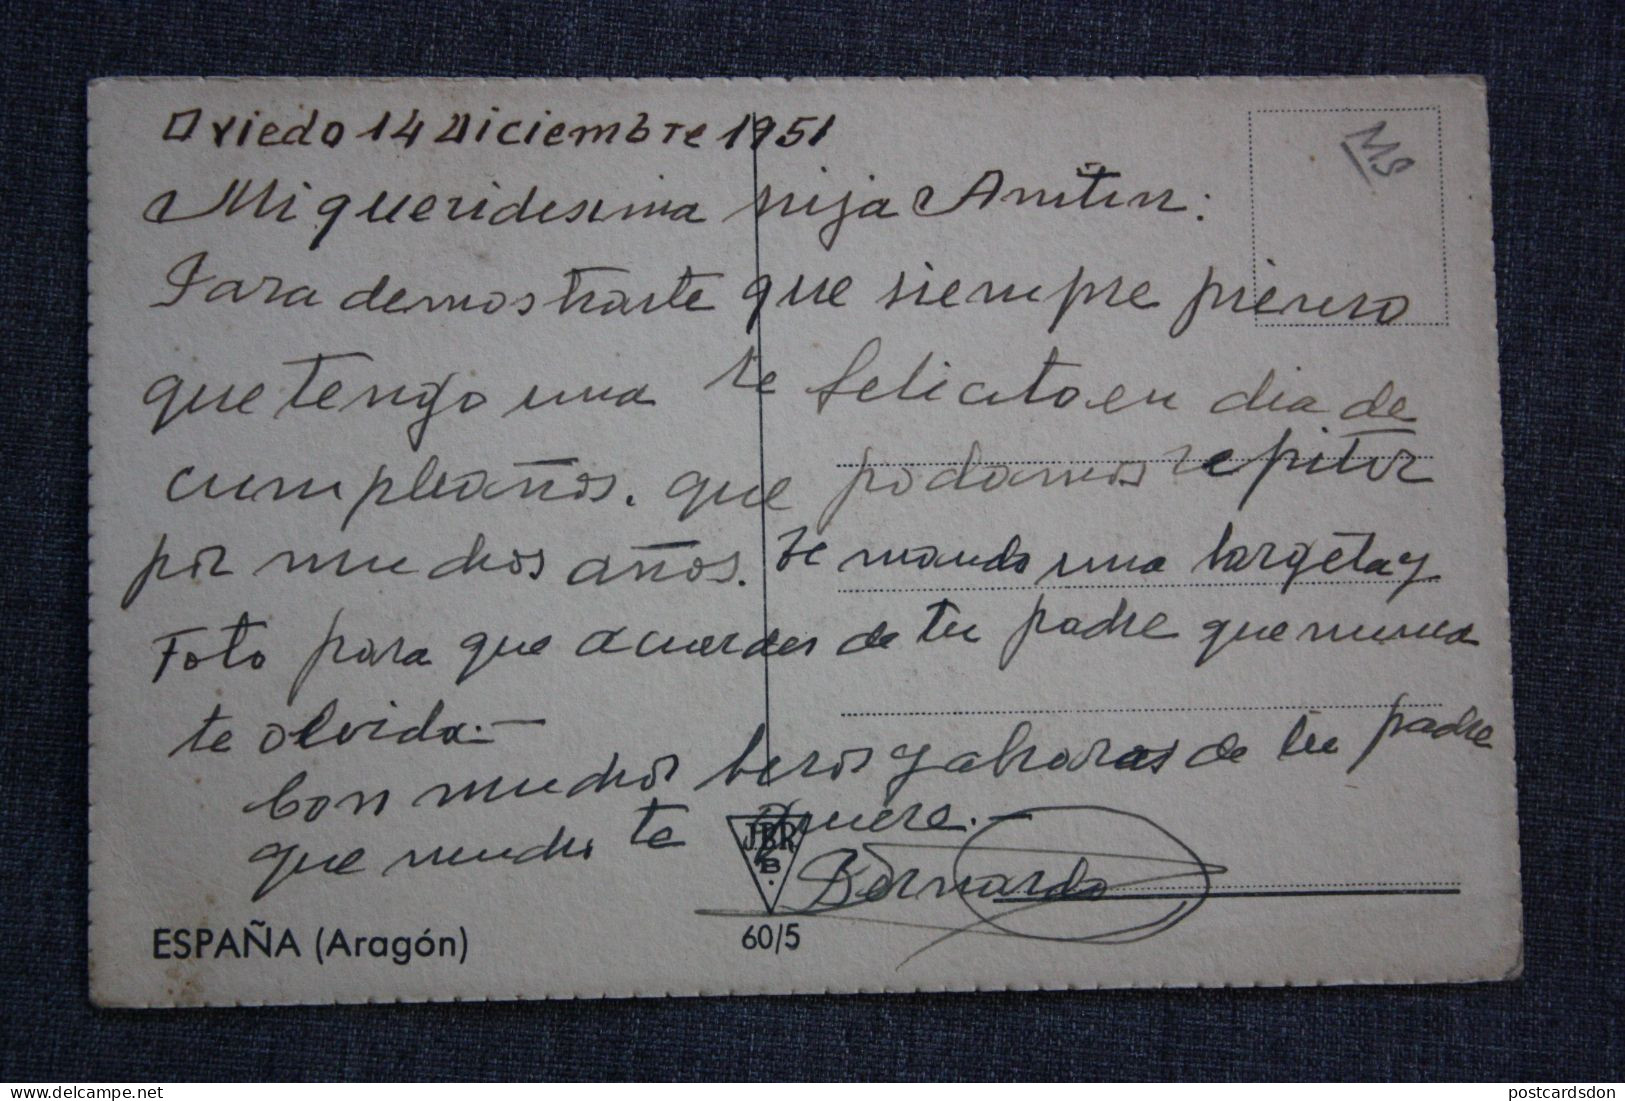 Oviedo 14 Diciembre 1951
MS
Mi queridisima hija Anitin:
Para demostrarte que siempre pienso
que tengo una te felicito en dia de
cumpleaños. que podamos repitir
por muchos años. te mando una targeta y
Foto para que acuerdes de tu padre que nunca
te olvida.—
Con muchos besos y abrazas de tu padre
que mucho te quiere.—
JBR
B.
Bernardo
ESPAÑA (Aragón)
60/5
postcardsdon